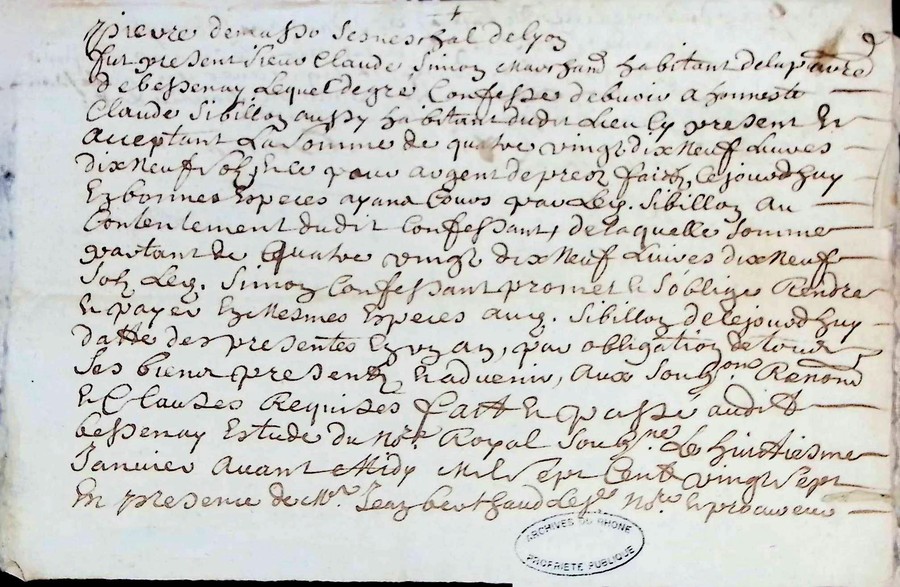 pierre de masso seneschal de lyon
fut present Sieur Claude Simon Marchand habitant de la parre
de bessenay Lequel de gré Confesse debvoir a honneste
Claude Sibillon aussy habitant dudit Lieu Cy present Et
acceptant La Somme de quatre vingt dix Neuf Livres
dix Neuf solz Et ce pour argent de prest faict Cejourdhuy
En bonnes Especes ayant Cours par Led. Sibillon au
Contentement dudit Confessant, de laquelle Somme
partant de Quatre vingt dix Neuf Livres dix Neuf
solz Led. Simon Confessant promet Et s'oblige Rendre
Et payer En Mesmes Especes aud. Sibillon de Cejourdhuy
datte des presentes En un an, par obligation de tous
Ses biens presentz Et advenir, aux Soubzons Renond
Et Clauses Requises faict Et passé audit
bessenay Estude du Nore Royal Soubzne Le huictiesme
Janvier avant Midy Mil Sept Cent vingt Sept
En presence de Mre Jean berthaud Nore Et procureur
ARCHIVES DU RHONE
PROPRIETE PUBLIQUE